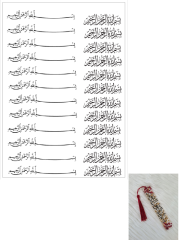 بسم الله الرحمن الرحيم بسم الله الرحمن الرحيم
بسم الله الرحمن الرحيم بسم الله الرحمن الرحيم
بسم الله الرحمن الرحيم بسم الله الرحمن الرحيم
بسم الله الرحمن الرحيم بسم الله الرحمن الرحيم
بسم الله الرحمن الرحيم بسم الله الرحمن الرحيم
بسم الله الرحمن الرحيم بسم الله الرحمن الرحيم
بسم الله الرحمن الرحيم بسم الله الرحمن الرحيم
بسم الله الرحمن الرحيم بسم الله الرحمن الرحيم
بسم الله الرحمن الرحيم بسم الله الرحمن الرحيم
بسم الله الرحمن الرحيم بسم الله الرحمن الرحيم
بسم الله الرحمن الرحيم بسم الله الرحمن الرحيم
بسم الله الرحمن الرحيم بسم الله الرحمن الرحيم